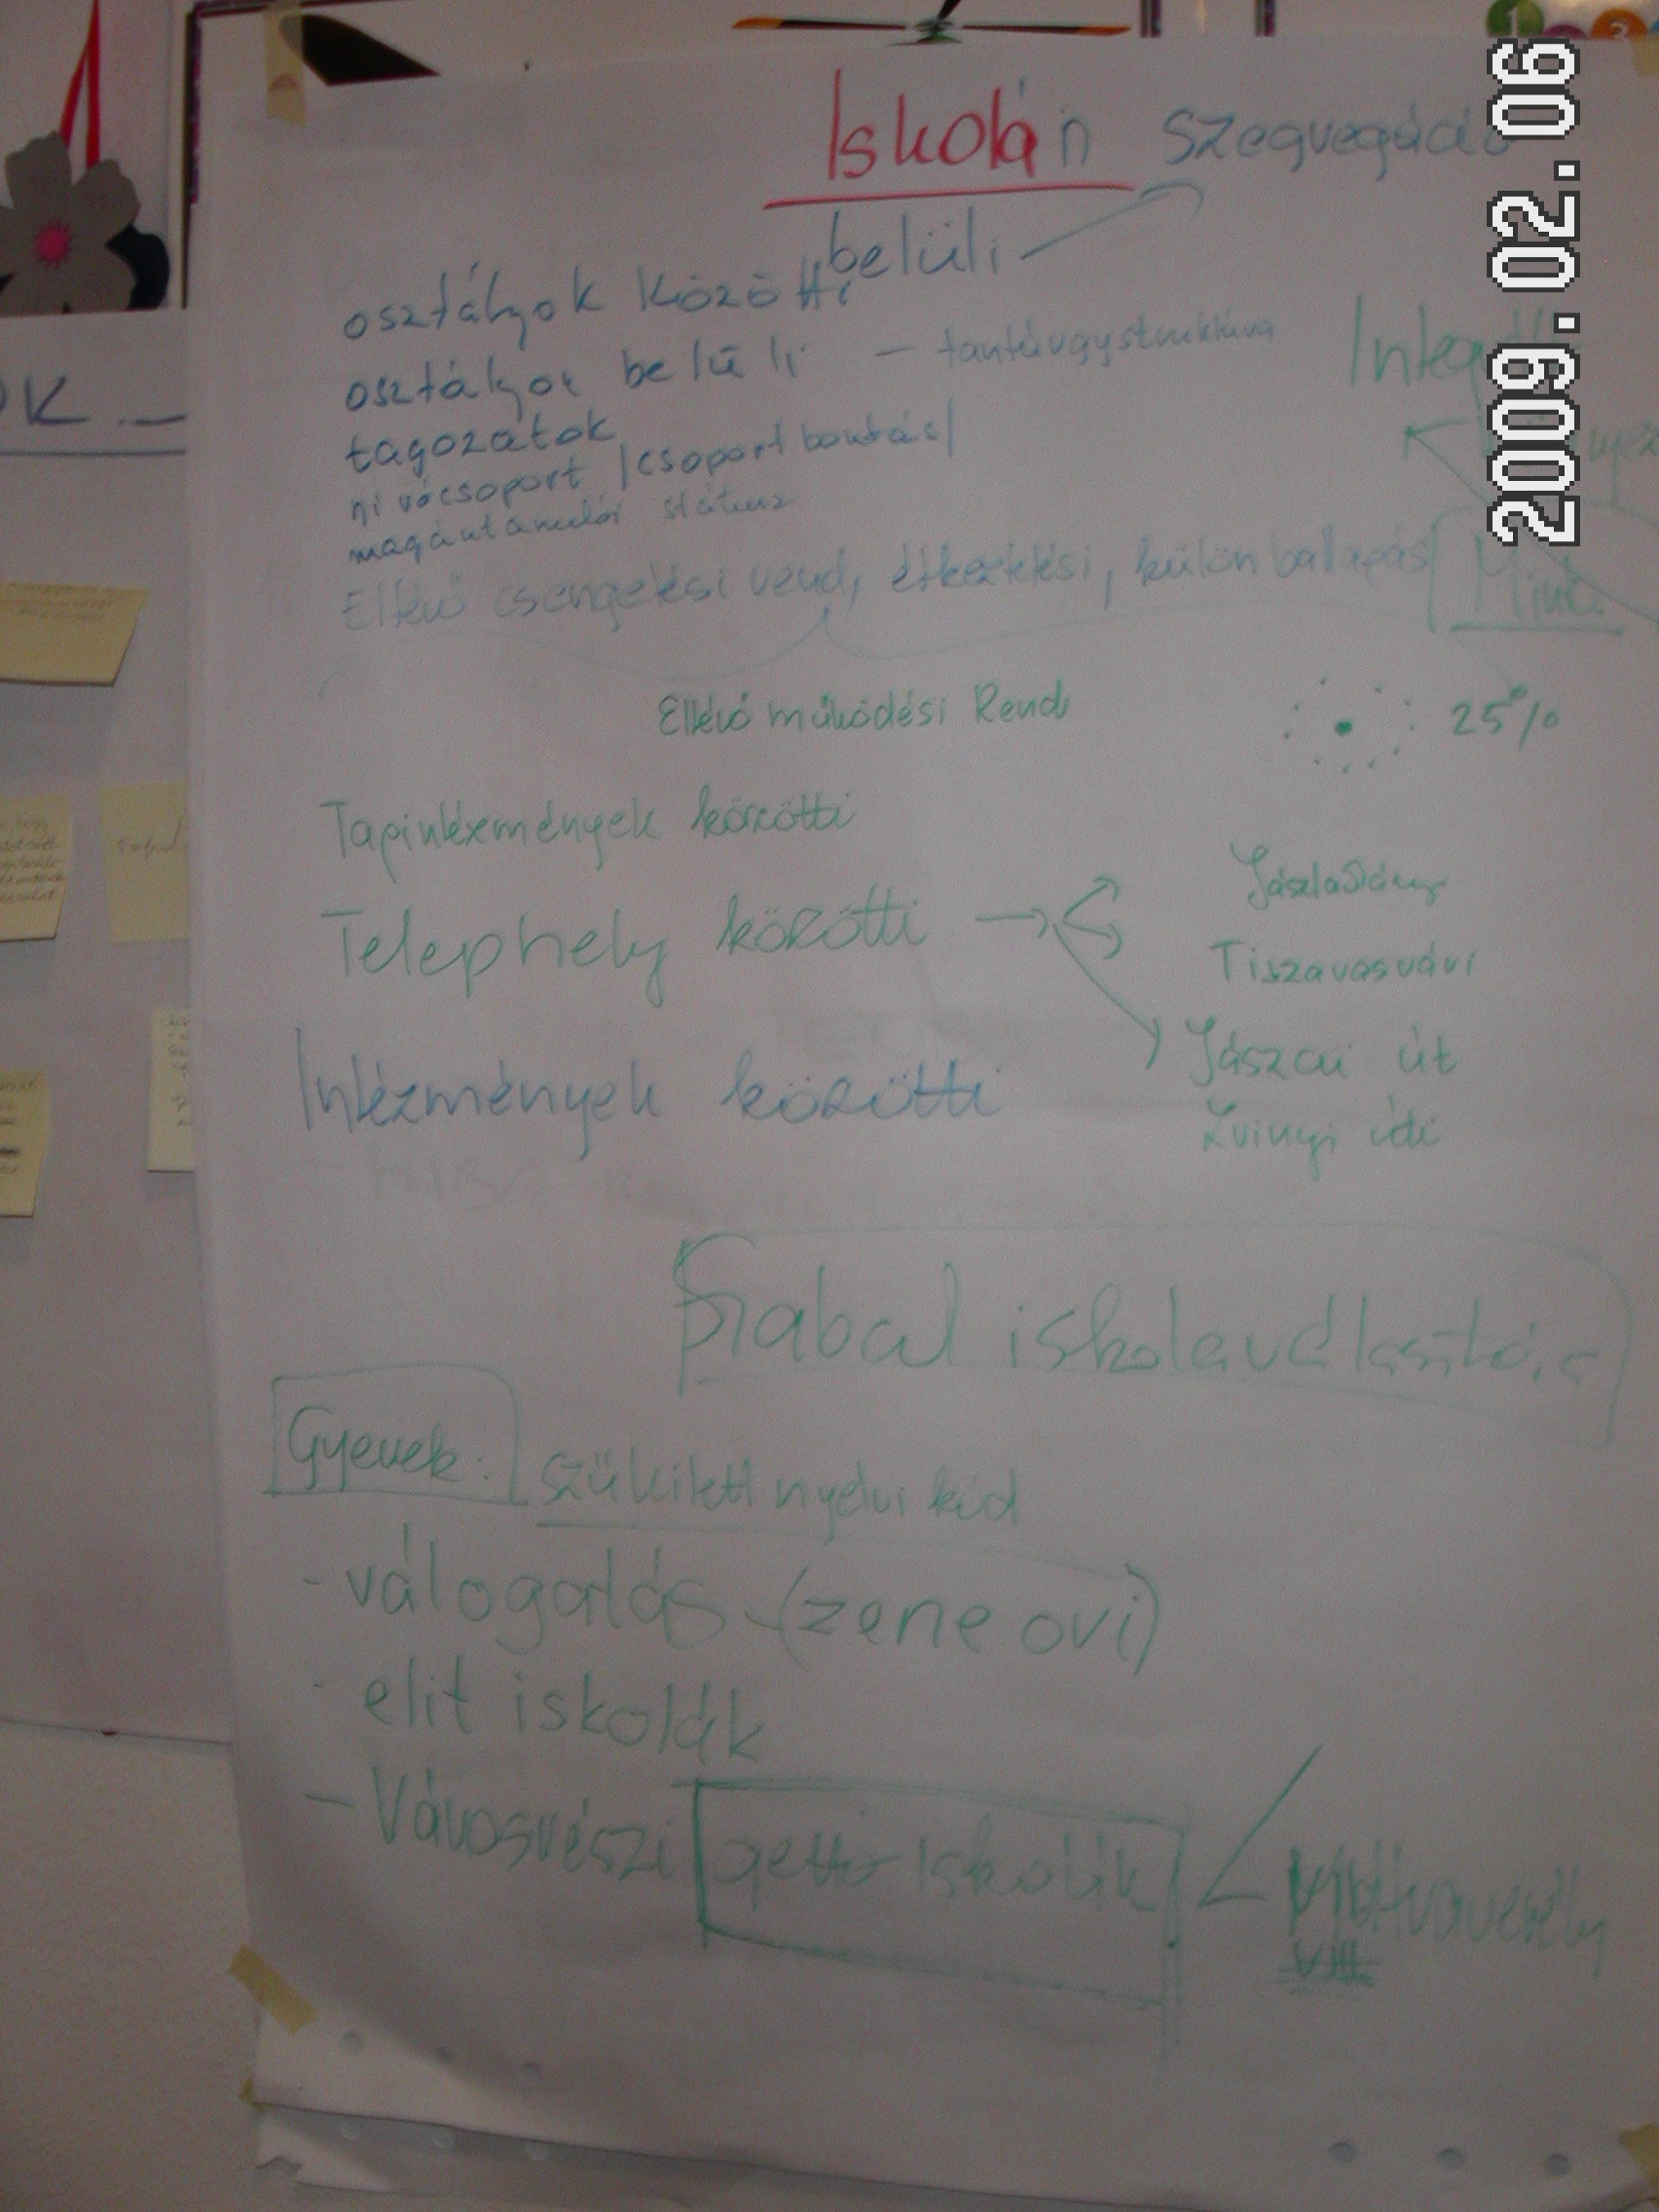 Iskolán szegregáció
belüli
osztályok közötti
osztályon belüli - tantárgystruktúra
tagozatok
nívócsoport /csoport bontás/
magántanulói státusz
Eltérő csengetési rend, étkeztetési, külön ballagás
Eltérő működési Rend
25%
Tagintézmények közötti
Telephely közötti → Jászladány
Tiszavasvári
Jászai út
Zrinyi úti
Intézmények közötti
Szabad iskolaválasztás
Gyerek: szűkített nyelvi kód
- válogatás (zene ovi)
- elit iskolák
- Városrészi gettó iskolák
VIII.
OK.
2009.02.06